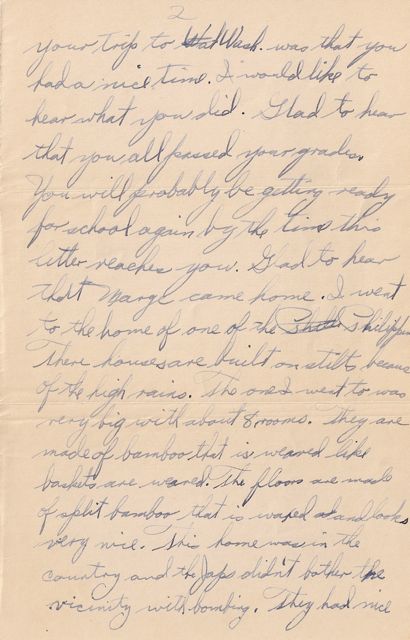 2
your trip to Wash. was that you
had a nice time. I would like to
hear what you did. Glad to hear
that you all passed your grades.
You will probably be getting ready
for school again by the time this
letter reaches you. Glad to hear
that Marge came home. I went
to the home of one of the Philippin
There houses are built on stilts because
of the high rains. The one I went to was
very big with about 8 rooms. They are
made of bamboo that is weaved like
baskets are weaved. The floors are made
of split bamboo that is waxed and looks
very nice. This home was in the
country and the Japs didn't bother the
vicinity with bombing. They had nice